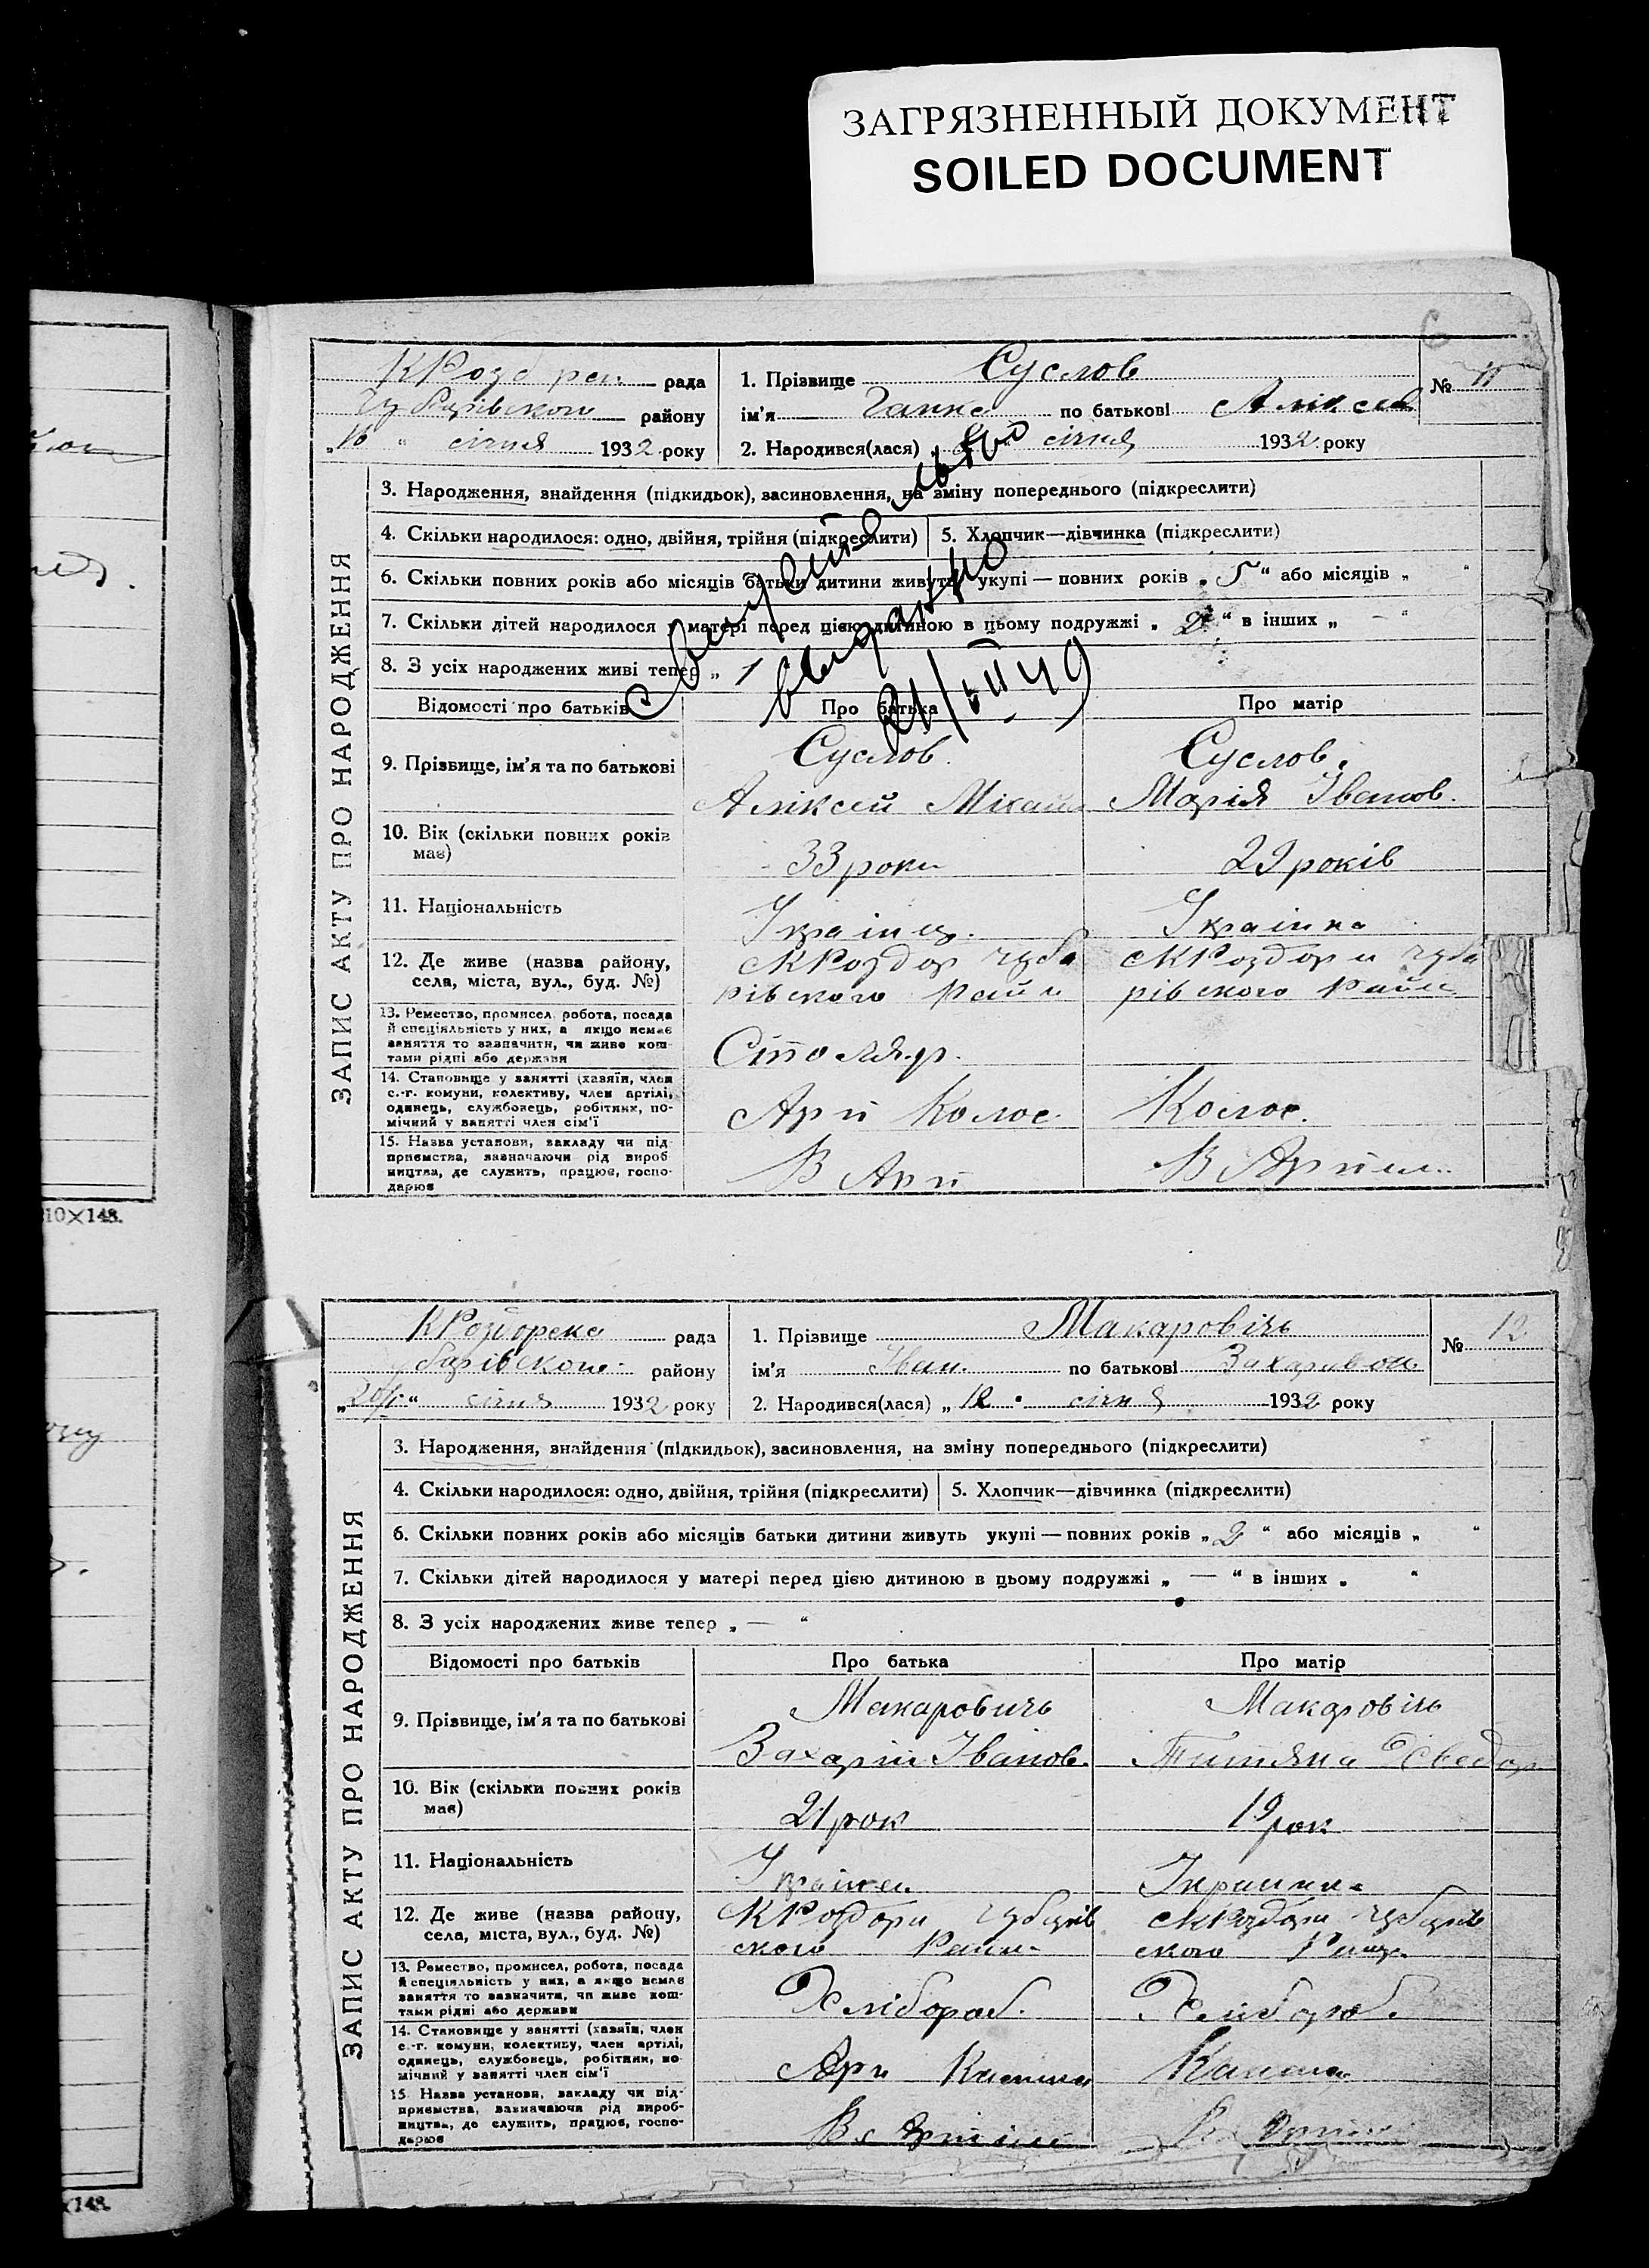 ЗАГРЯЗНЕННЫЙ ДОКУМЕНТ
SOILED DOCUMENT
10×148.
×148.
6
рада
1. Прізвище Суслов
№ 11
Чубарівского району
ім'я Ганна по батькові Аліксей
січня 1932 року
2. Народився(лася) січня 1932 року
ЗАПИС АКТУ ПРО НАРОДЖЕННЯ
3. Народження, знайдення (підкидьок), засиновлення, на зміну попереднього (підкреслити)
4. Скільки народилося: одно, двійня, трійня (підкреслити)
5. Хлопчик—дівчинка (підкреслити)
6. Скільки повних років або місяців батьки дитини живуть укупі — повних років „ 5 “ або місяців „ “
7. Скільки дітей народилося у матері перед цією дитиною в цьому подружжі „ 2 “ в інших „ — “
8. З усіх народжених живі тепер „ 1
выдано
Відомості про батьків
Про батька
Про матір
9. Прізвище, ім'я та по батькові
Суслов
Аліксей Міхайл
Суслов.
Марія Іванов.
10. Вік (скільки повних років має)
33 роки
29 років
11. Національність
Українц.
Українка
12. Де живе (назва району,
села, міста, вул., буд. №)
с КРоздор Чуба
рівского Рай
с КРоздори Чуба
рівского Рай
13. Ремество, промисел, робота, посада
й спеціяльність у них, а якщо немає
заняття то зазначити, чи живе кош-
тами рідні або держави
Столяр.
14. Становище у занятті (хазяїн, член
с.-г. комуни, колективу, член артілі,
одинець, службовець, робітник, по-
мічний у занятті член сім'ї
Колос.
Колос.
15. Назва установи, закладу чи під-
приємства, зазначаючи рід вироб-
ництва, де служить, працює, госпо-
дарює
В Арт
В Артил.
КРоздорска рада
1. Прізвище Макаровічь
№ 12
району
ім'я Іван по батькові Захарівоч
січня 1932 року
2. Народився(лася) „ 12 “ січня 1932 року
ЗАПИС АКТУ ПРО НАРОДЖЕННЯ
3. Народження, знайдення (підкидьок), засиновлення, на зміну попереднього (підкреслити)
4. Скільки народилося: одно, двійня, трійня (підкреслити)
5. Хлопчик—дівчинка (підкреслити)
6. Скільки повних років або місяців батьки дитини живуть укупі — повних років „ 2 “ або місяців „ “
7. Скільки дітей народилося у матері перед цією дитиною в цьому подружжі „ — “ в інших „ “
8. З усіх народжених живе тепер „ — “
Відомості про батьків
Про батька
Про матір
9. Прізвище, ім'я та по батькові
Макаровичь
Захарій Іванов.
Макаровічь
10. Вік (скільки повних років має)
21 рок
19 рок
11. Національність
12. Де живе (назва району,
села, міста, вул., буд. №)
с КРоздори Чубарів
ского Району
с КРоздори Чубарів
ского
13. Ремество, промисел, робота, посада
й спеціяльність у них, а якщо немає
заняття то зазначити, чи живе кош-
тами рідні або держави
Хліброб.
Хліброб.
14. Становище у занятті (хазяїн, член
с.-г. комуни, колективу, член артілі,
одинець, службовець, робітник, по-
мічний у занятті член сім'ї
15. Назва установи, закладу чи під-
приємства, зазначаючи рід вироб-
ництва, де служить, працює, госпо-
дарює